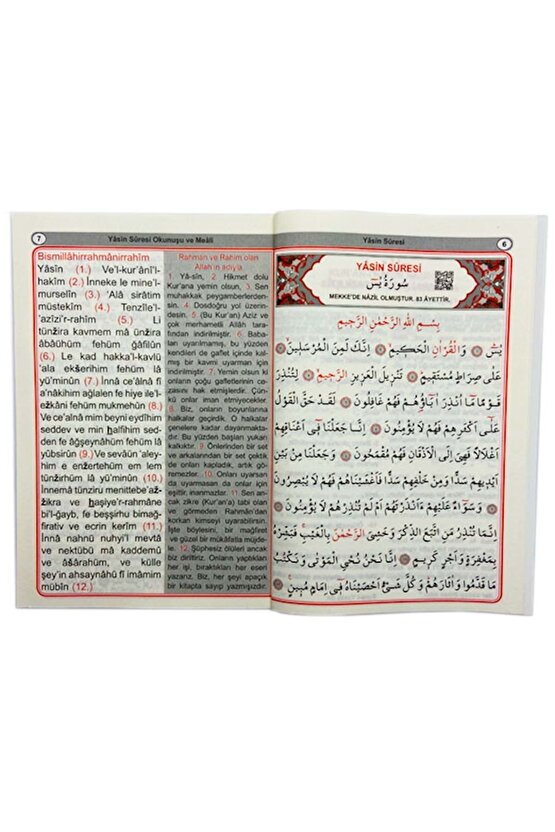 7
Yâsin Sûresi Okunuşu ve Meâli
Bismillâhirrahmânirrahîm
Yâsîn (1.) Ve'l-kur'âni'l-
hakîm (2.) İnneke le mine'l-
murselîn (3.) 'Alâ sirâtim
müstekîm (4.) Tenzîle'l-
'azîzi'r-rahîm (5.) Li
tünžira kavmem mâ ünžira
âbâühüm fehüm gâfilûn
(6.) Le kad hakka'l-kavlü
'ala ekšerihim fehüm lâ
yü'minûn (7.) İnnâ ce'alnâ fî
a'nâkihim ağlalen fe hiye ile'l-
ežkâni fehüm mukmehûn (8.)
Ve ce'alnâ mim beyni eydîhim
seddev ve min halfihim sed-
den fe âğşeynâhüm fehüm lâ
yübsirûn (9.) Ve sevâün 'aley-
him e enžertehüm em lem
tünžirhüm lâ yü'minûn (10.)
İnnemâ tünziru menittebe'až-
žikra ve haşiye'r-rahmâne
bi'l-ğayb, fe beşşirhu bimağ-
firativ ve ecrin kerîm (11.)
İnnâ nahnü nuhyi'l mevtâ
ve nektübü mâ kaddemû
ve âšârahüm, ve külle
şey'in ahsaynâhü fî imâmim
mübîn (12.)
Rahmân ve Rahîm olan
Allah'ın adıyla
1. Yâ-sîn, 2. Hikmet dolu
Kur'ana yemin olsun, 3. Sen
muhakkak peygamberlerden-
sin. 4. Dosdoğru yol üzerin-
desin. 5. (Bu Kur'an) Azîz ve
çok merhametli Allâh tara-
fından indirilmiştir. 6. Baba-
ları uyarılmamış, bu yüzden
kendileri de gaflet içinde kal-
mış bir kavmi uyarman için
indirilmiştir. 7. Yemin olsun ki
onların çoğu gafletlerinin ce-
zasını hak etmişlerdir. Çün-
kü onlar iman etmiyecekler.
8. Biz, onların boyunlarına
halkalar geçirdik. O halkalar
çenelere kadar dayanmakta-
dır. Bu yüzden başları yukarı
kalkıktır. 9. Önlerinden bir set
ve arkalarından bir set çektik
de onları kapladık, artık gö-
remezler. 10. Onları uyarsan
da uyarmasan da onlar için
eşittir, inanmazlar. 11. Sen an-
cak zikre (Kur'an'a) tabi olan
ve görmeden Rahmân'dan
korkan kimseyi uyarabilirsin.
İşte böylesini, bir mağfiret
ve güzel bir mükâfatla müjde-
le. 12. Şüphesiz ölüleri ancak
biz diriltiriz. Onların yaptıkları
her işi, bıraktıkları her eseri
yazarız. Biz, her şeyi apaçık
bir kitapta sayıp yazmışızdır.
Yâsin Sûresi
6
YÂSİN SÛRESİ
سُورَةُ يٰسٓ
MEKKE'DE NÂZİL OLMUŞTUR. 83 ÂYETTİR.
بِسْمِ اللّٰهِ الرَّحْمٰنِ الرَّحِيمِ
يٰسٓ ۞ وَالْقُرْاٰنِ الْحَكِيمِ ۞ اِنَّكَ لَمِنَ الْمُرْسَلِينَ ۞
عَلٰى صِرَاطٍ مُسْتَقِيمٍ ۞ تَنْزِيلَ الْعَزِيزِ الرَّحِيمِ ۞ لِتُنْذِرَ
قَوْمًا مَٓا اُنْذِرَ اٰبَٓاؤُهُمْ فَهُمْ غَافِلُونَ ۞ لَقَدْ حَقَّ الْقَوْلُ
عَلٰٓى اَكْثَرِهِمْ فَهُمْ لَا يُؤْمِنُونَ ۞ اِنَّا جَعَلْنَا فِٓى اَعْنَاقِهِمْ
اَغْلَالًا فَهِىَ اِلَى الْاَذْقَانِ فَهُمْ مُقْمَحُونَ ۞ وَجَعَلْنَا مِنْ بَيْنِ
اَيْدِيهِمْ سَدًّا وَمِنْ خَلْفِهِمْ سَدًّا فَاَغْشَيْنَاهُمْ فَهُمْ لَا يُبْصِرُونَ
۞ وَسَوَٓاءٌ عَلَيْهِمْ ءَاَنْذَرْتَهُمْ اَمْ لَمْ تُنْذِرْهُمْ لَا يُؤْمِنُونَ ۞
اِنَّمَا تُنْذِرُ مَنِ اتَّبَعَ الذِّكْرَ وَخَشِىَ الرَّحْمٰنَ بِالْغَيْبِ فَبَشِّرْهُ
بِمَغْفِرَةٍ وَاَجْرٍ كَرِيمٍ ۞ اِنَّا نَحْنُ نُحْيِ الْمَوْتٰى وَنَكْتُبُ
مَا قَدَّمُوا وَاٰثَارَهُمْ وَكُلَّ شَىْءٍ اَحْصَيْنَاهُ فِٓى اِمَامٍ مُبِينٍ ۞